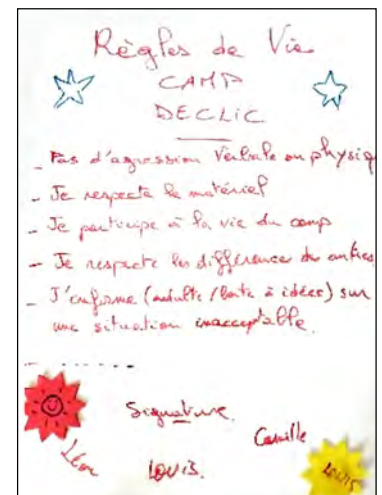 Règles de Vie
CAMP
DECLIC
- Pas d'agression Verbale ou physiq
- Je respecte le matériel
- Je participe à la vie du camp
- Je respecte les différence des autres
- J'informe (adulte / boîte à idées) sur
une situation inacceptable.
Signature.
Camille
Léon
LOUIS.
LOUIS